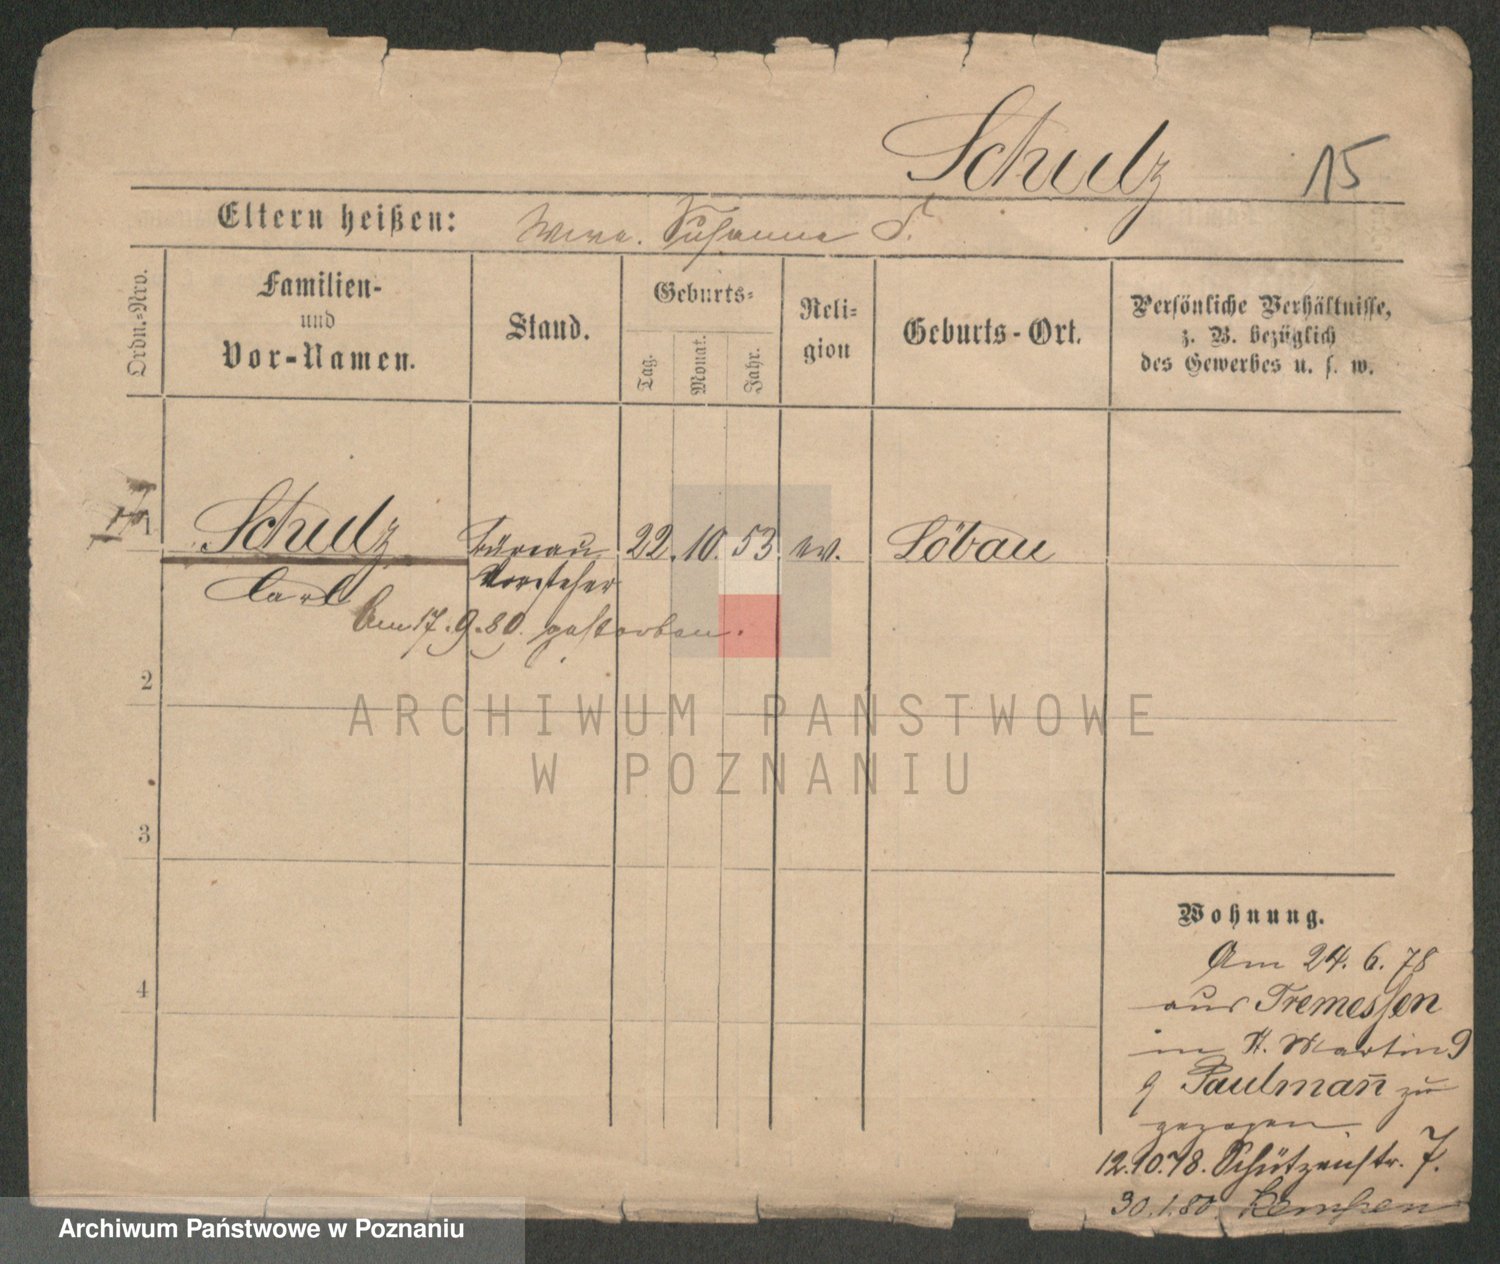 Schulz 15
Eltern heißen: Wwe. Susanna S.
Ordn.-Nro.
Familien-
und
Vor-Namen.
Stand.
Geburts-
Tag.
Monat.
Jahr.
Reli-
gion
Geburts-Ort.
Persönliche Verhältnisse,
z. B. bezüglich
des Gewerbes u. s. w.
1 Schulz Büreau 22. 10. 53. ev. Löbau
Carl Vorsteher
Am 17.9.80. gestorben.
2
ARCHIWUM PANSTWOWE
W POZNANIU
3
4
Wohnung.
Am 24. 6. 78
aus Tremessen
in St. Martin 9
Paulmañ zu
gezogen.
12.10.78. Schützenstr. 7.
30.1.80. Kempen
Archiwum Państwowe w Poznaniu